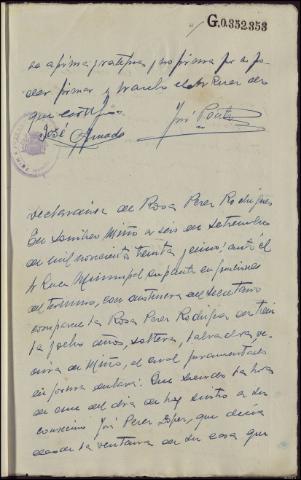 G.0.352.353
se afirma y ratifica, y no firma por no po-
der firmar y haciendolo el Sr Juez de
que certifico
José Amado José Pontes
Declaración de Rosa Perez Rodriguez
En Miño a seis de Setiembre
de mil novecientos treinta y cinco; ante el
Sr Juez Municipal en funciones
del termino, con asistencia del Secretario
comparece la Rosa Perez Rodriguez de trein
ta y ocho años, soltera, labradora, ve-
cina de Miño, el cual juramentada
en forma declara: Que siendo la hora
de once del dia de hoy sintio a su
convecino José Perez Lopez, que decia
desde la ventana de su casa que